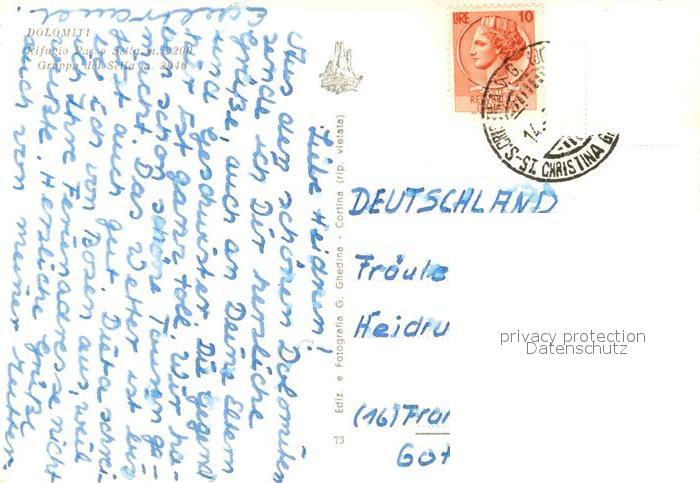 DOLOMITI
Rifugio Passo Sella m. 2200
Gruppo del Sella m. 2946
Liebe Heidrun!
Aus den schönen Dolomiten
sende ich Dir herzliche
Grüße, auch an Deine Eltern
und Geschwister. Die Gegend
hier ist ganz toll. Wir ha-
ben schon schöne Touren ge-
macht. Das Wetter ist bis
jetzt auch gut. Duta schrei-
be ich von Bozen aus, weil
ich ihre Ferienadresse nicht
wußte. Herzliche Grüße
auch von meiner Mutter.
Ediz. e Fotografia G. Ghedina - Cortina (rip. vietata)
73
LIRE 10
S. CRISTINA
ST. CHRISTINA
14.
DEUTSCHLAND
Fräule
Heidru
(16) Fran
Got
privacy protection
Datenschutz